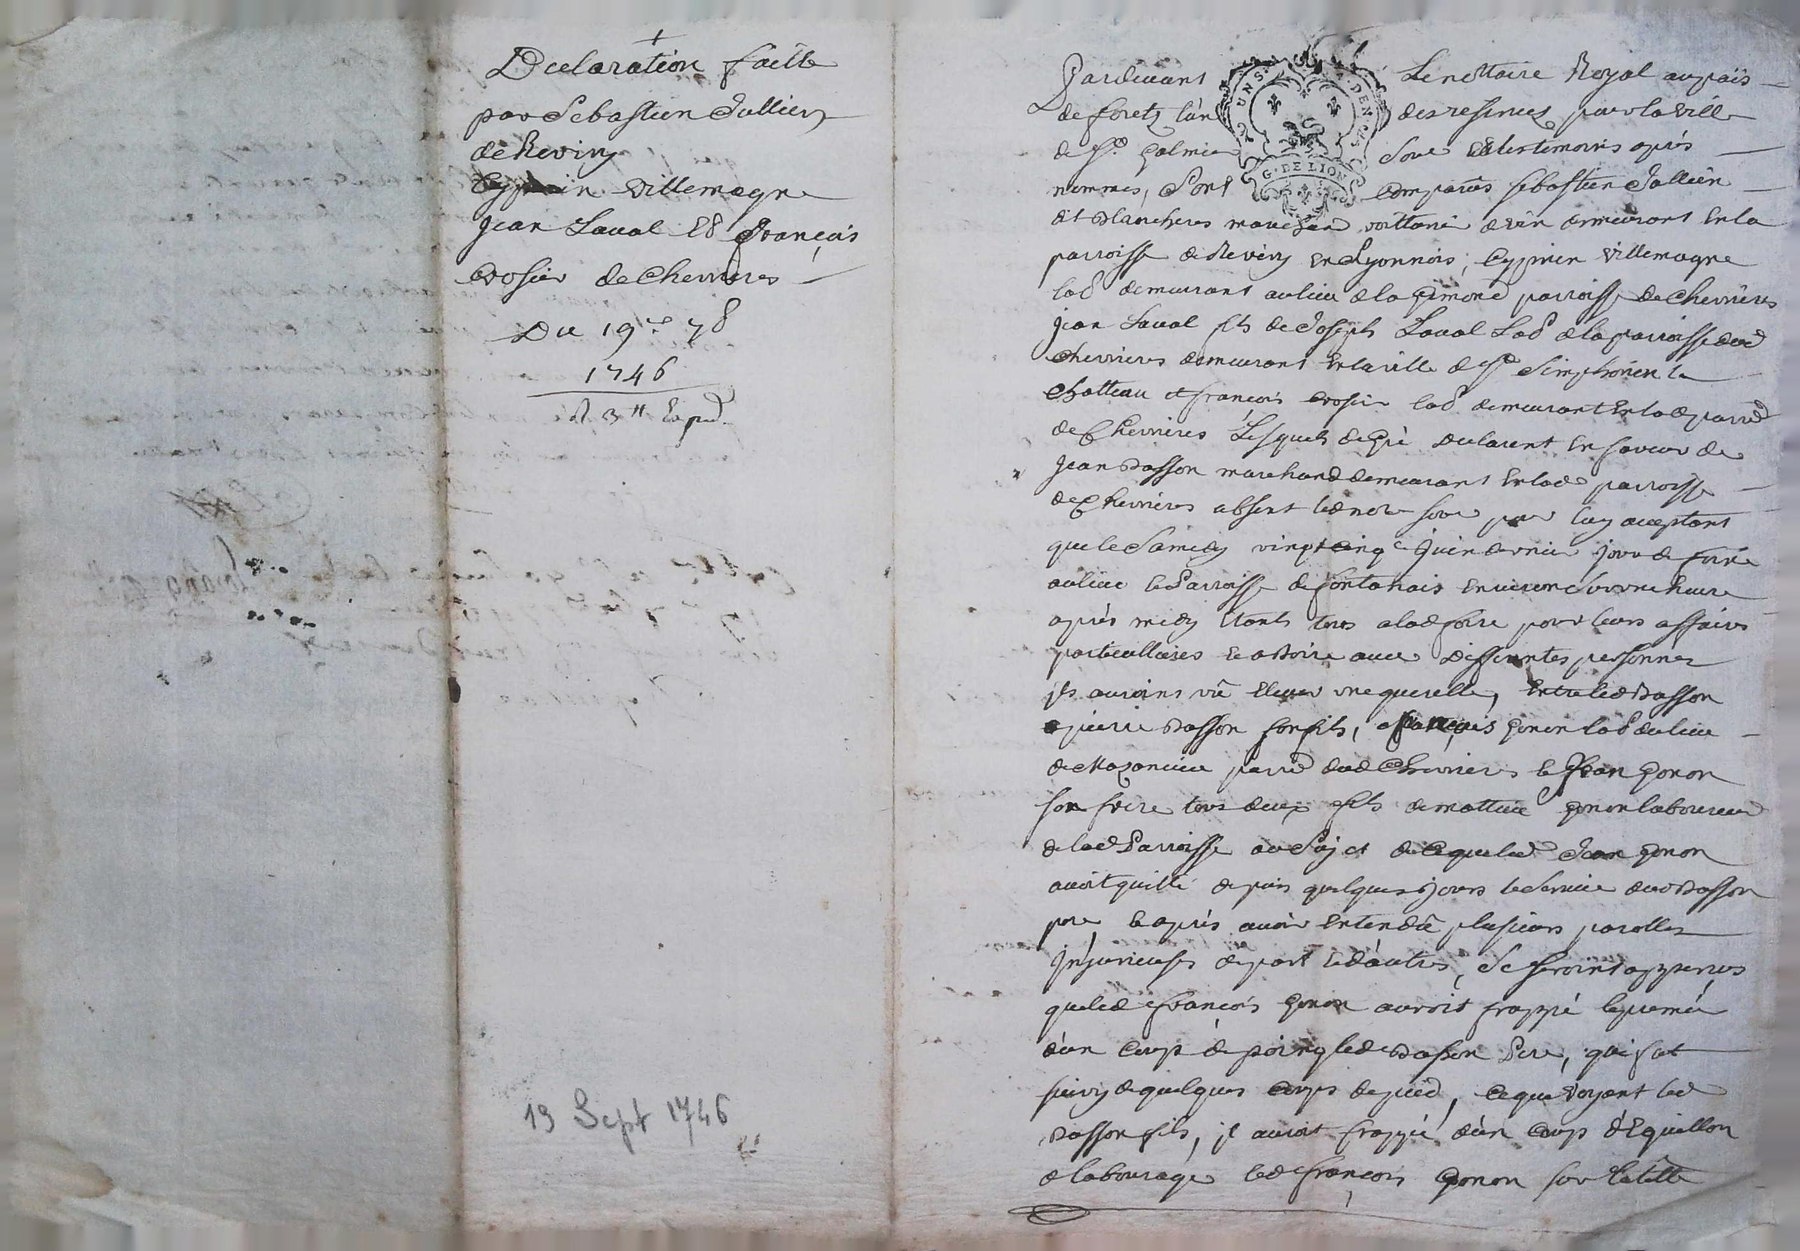 Declaration faitte
par Sebastien Jullien
de Reviry
Cyprien Villemagne
Jean Laval Et François
crosier de Chevrieres
Du 19e 7b
1746
13 Sept 1746
Pardevant Le nottaire Royal au païs
de foretz l'un des reservés pour la ville
de St galmier sousé Et les temoins après
UN S. DEN. 4 S
G. DE LION
nommés, Sont comparus sebastien Jullien
dt planches marchand voitturié de vin demeurant En la
parroisse de Reviry En Lyonnois, Cyprien Villemagne
labr demeurant au lieu de la Gimond parroisse de Chevrieres
Jean Laval fils de Joseph Laval Labr de la parroisse dud
Chevrieres demeurant En la ville de St Simphorien le
Chatteau et françois crosier labr demeurant En lad parre
de Chevrieres Lesquels de Gré declarent En faveur de
Jean Basson marchand demeurant En lad parroisse
de Chevrieres absent led nore soué pour luy acceptant
que le Samedy vingt cinqe Juin dernier jour de foire
au lieu Et Parroisse de fontanais Environ Sur une heure
après midy Etants tous a lad foire pour leurs affaires
particullieres Et a boire avec Differentes personnes
ils auroint vû Elever une querelle, Entre led Basson
pierre Basson son fils, françois gonon labr du lieu
de Mazancieu parre dud Chevrieres Et Jean gonon
son frere tous deux fils de mattieu gonon laboureur
de lad Parroisse au Sujet de ce que led Jean gonon
avoit quitté depuis quelques jours le Service dud Basson
pere Et après avoir Entendû plusieurs parolles
Injurieuses de part Et d'autres, Se seroint apperçus
que led françois gonon auroit frappé le premier
d'un Coup de poing led Basson Pere, qui fut
suivy de quelques Coups de pied, Ce que Voyant led
Basson fils, il auroit frappé d'un Coup d'Eguillon
de labourage led françois gonon sur la tette